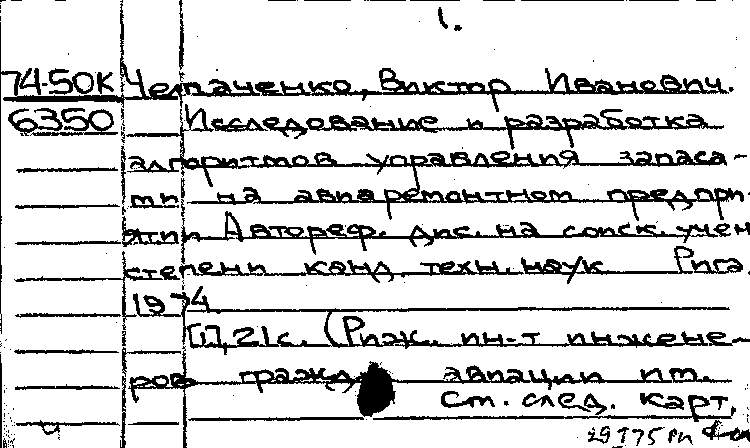 1.
74-50К Челпаченко, Виктор Иванович.
6350 Исследование и разработка
алгоритмов управления запаса-
ми на авиаремонтном предпри-
ятии Автореф. дис. на соиск. учен
степени канд. техн. наук Рига
1974
[1], 21с. (Риж. ин-т инжене-
ров гражд авиации им.
См. след. карт.
29 I 75